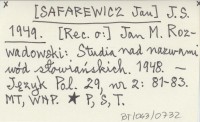 [SAFAREWICZ Jan] J.S.
1949. [Rec. o:] Jan M. Roz-
wadowski: Studia nad nazwami
wód słowiańskich. 1948. —
Język Pol. 29, nr 2: 81-83.
MT, WHP. ★ P, S, T.
BY/063/0732